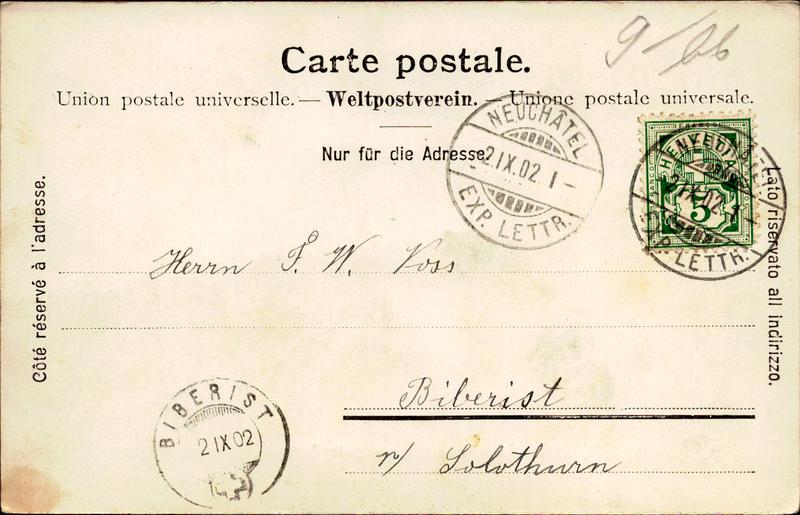 9/66
Carte postale.
Union postale universelle. — Weltpostverein. — Unione postale universale.
Nur für die Adresse.
NEUCHÂTEL
2.IX.02 1 –
EXP. LETTR.
FRANCO
5
2.IX.02 1
EXP. LETTR.
Côté réservé à l'adresse.
Lato riservato all indirizzo.
Herrn F. W. Voss
Biberist
n/ Solothurn
BIBERIST
2 IX 02